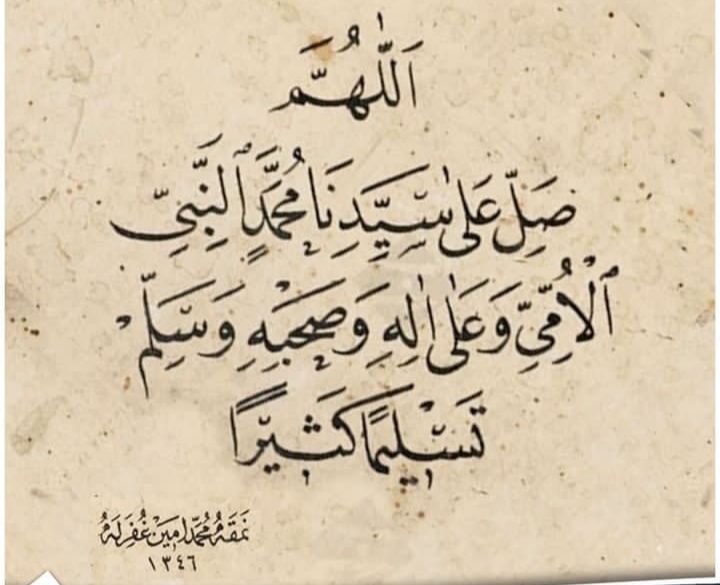 اَللّٰهُمَّ
صَلِّ عَلٰى سَيِّدِنَا مُحَمَّدٍ ٱلنَّبِيِّ
ٱلْاُمِّيِّ وَعَلٰى اٰلِهِ وَصَحْبِهِ وَسَلِّمْ
تَسْلِيمًا كَثِيرًا
نمقه محمد امين غفر له
١٣٤٦